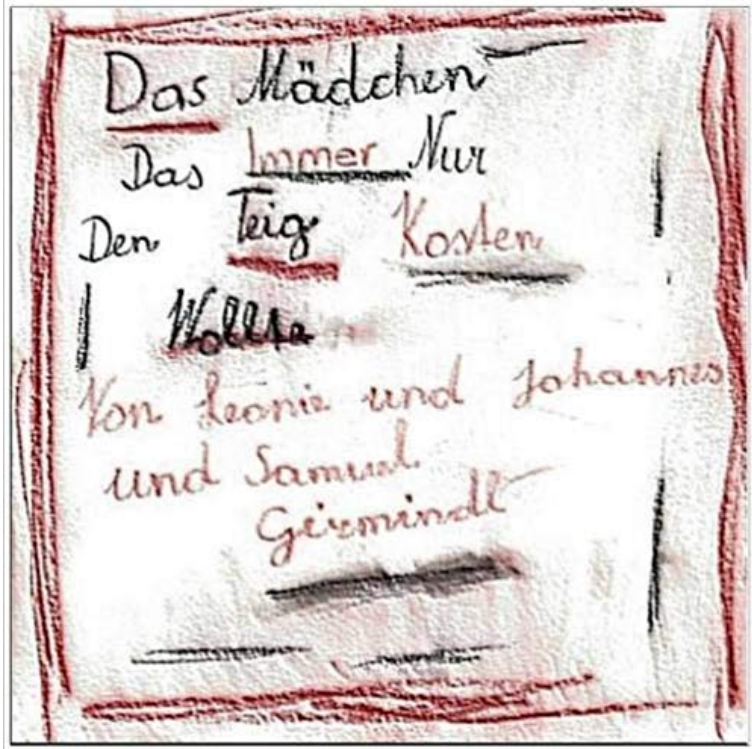 Das Mädchen
Das Immer Nur
Den Teig Kosten
Wollte
Von Leonie und Johannes
und Samuel
Germindl